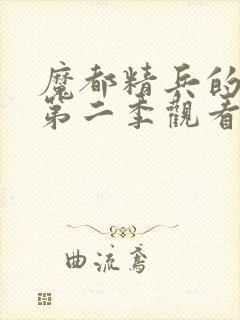 魔都精兵的
第二季觀看
曲流鳶